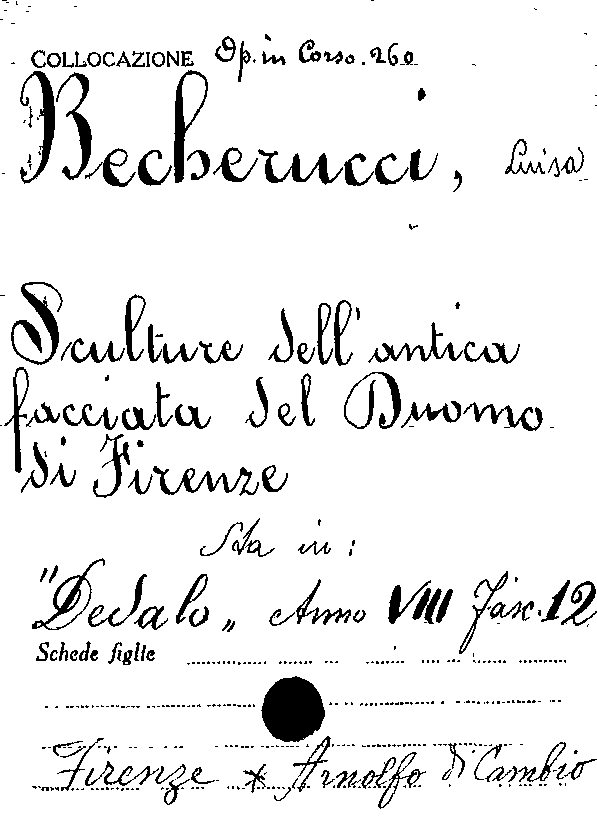 COLLOCAZIONE Op. in Corso. 260
Becherucci, Luisa
Sculture dell'antica
facciata del Duomo
di Firenze
Sta in:
"Dedalo" Anno VIII Fasc. 12
Schede figlie
Firenze * Arnolfo di Cambio